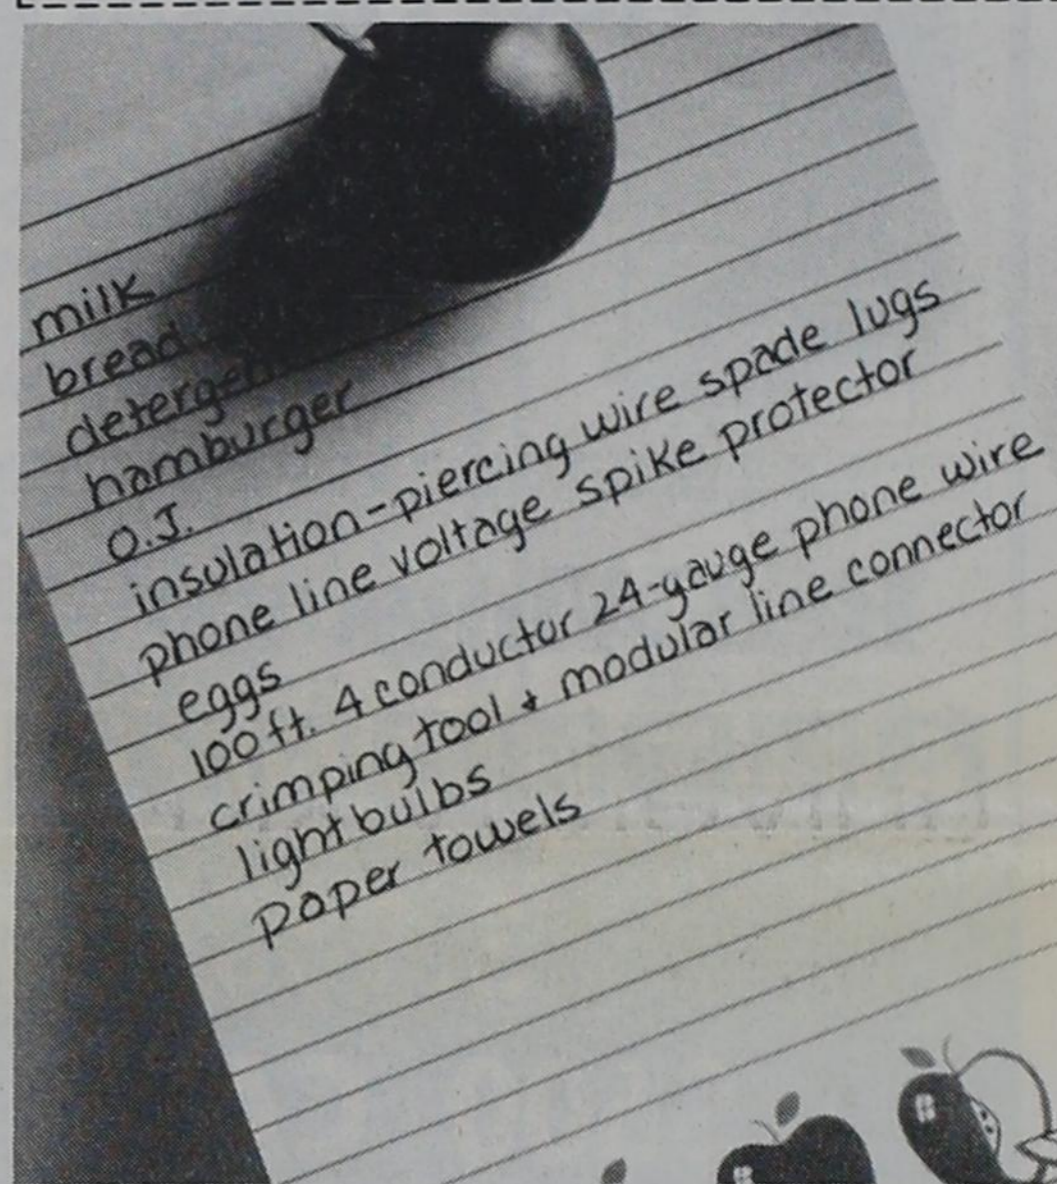 milk
bread
detergent
hamburger
O.J.
insulation-piercing wire spade lugs
phone line voltage spike protector
eggs
100 ft. 4 conductor 24-gauge phone wire
crimping tool & modular line connector
light bulbs
paper towels